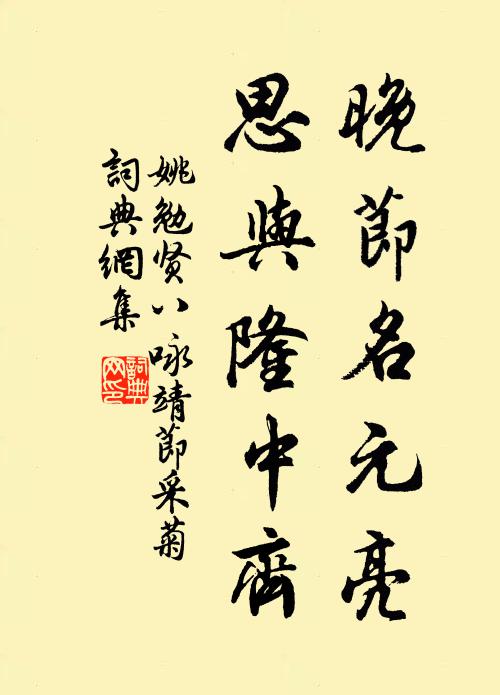 晚節名元亮
思與隆中齊
姚勉贤八咏靖節采菊
詞典網集
詞典網印